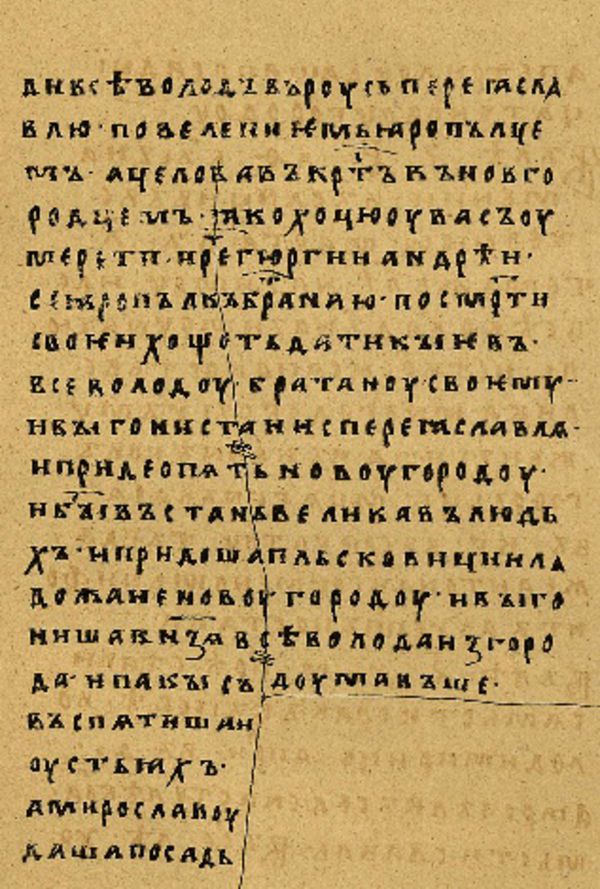 ди всѣволодъ въ роусь перегаслa
влю · повелениѥмь ꙗропълце
мь · а целовавъ крт҃ъ къ новго
родцемъ · ꙗко хоцю оу васъ оу
мерети · и ре гюрги и андрѣи ·
се ꙗропълкъ бра наю · по см҃рти
своѥи хощеть дати кꙑѥвъ ·
всеволодоу · братаноу своѥмоу ·
и вꙑгониста и ис переꙗславлѧ ·
и приде опѧть новоугородоу ·
и бꙑⷭ҇ въстань велика въ людь
хъ · и придоша пльсковици и ла
дожане новоугородоу · и вꙑго
ниша кнѧзѧ всѣволода из горо
да · и пакꙑ съдоумавъше ·
въспѧтиша и
оустьꙗхъ ·
а мирославоу
даша посадь